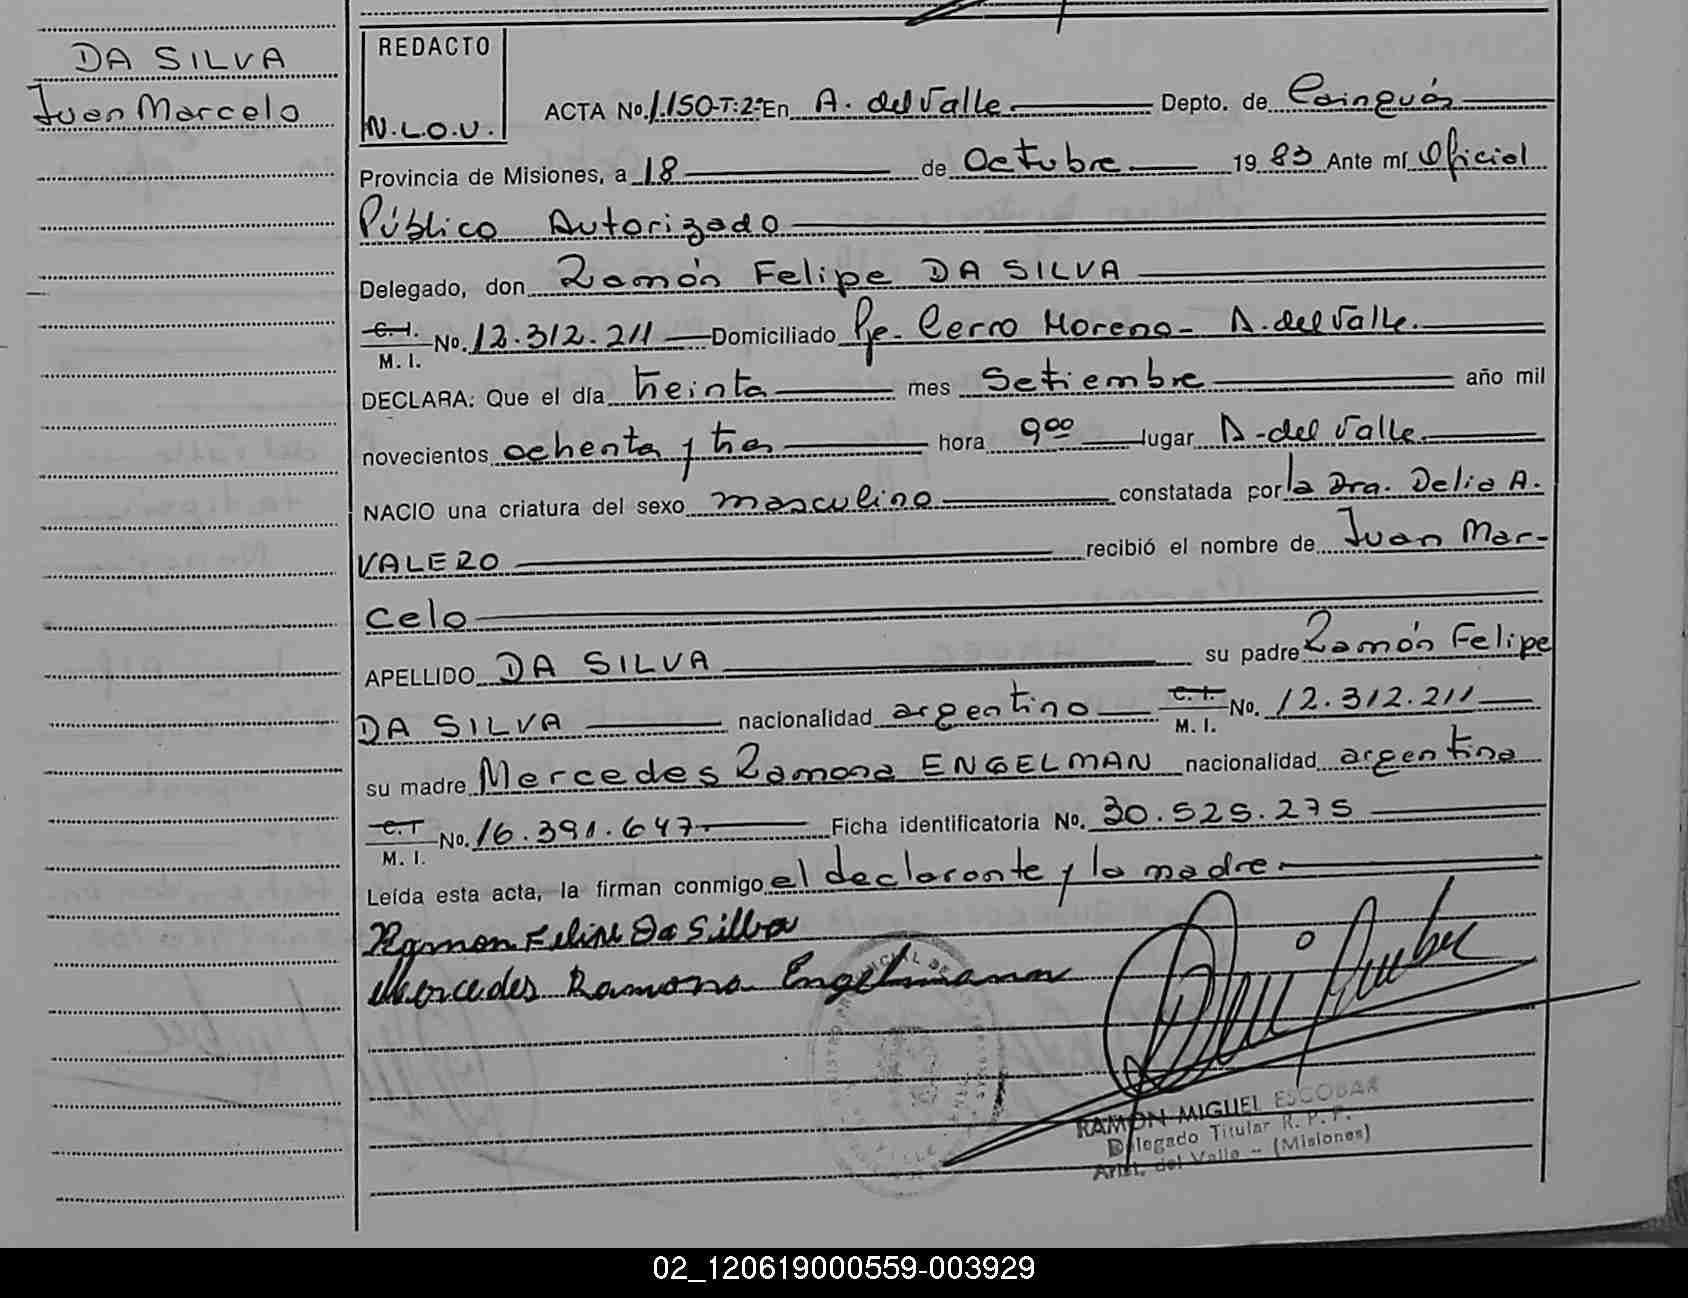 DA SILVA
Juan Marcelo
REDACTO
N.L.O.U.
ACTA No. 1.150-T:2º En A. del Valle Depto. de Cainguás
Provincia de Misiones, a 18 de Octubre 19 83 Ante mí Oficial
Público Autorizado
Delegado, don Ramón Felipe DA SILVA
C. I.
M. I. No. 12.312.211 Domiciliado Pje. Cerro Moreno - A. del Valle.
DECLARA: Que el día treinta mes Setiembre año mil
novecientos ochenta y tres hora 9 00 lugar A. del Valle.
NACIO una criatura del sexo masculino constatada por la Dra. Delia A.
VALERO recibió el nombre de Juan Mar-
celo
APELLIDO DA SILVA su padre Ramón Felipe
DA SILVA nacionalidad argentino C. I. M. I. No. 12.312.211
su madre Mercedes Ramona ENGELMAN nacionalidad argentina
C. I.
M. I. No. 16.391.647. Ficha identificatoria No. 30.525.275
Leída esta acta, la firman conmigo el declarante y la madre.
Ramon Felipe Da Silba
Mercedes Ramona Engelmann
RAMON MIGUEL ESCOBAR
Delegado Titular R. P. P.
Arist. del Valle - (Misiones)
02_120619000559-003929